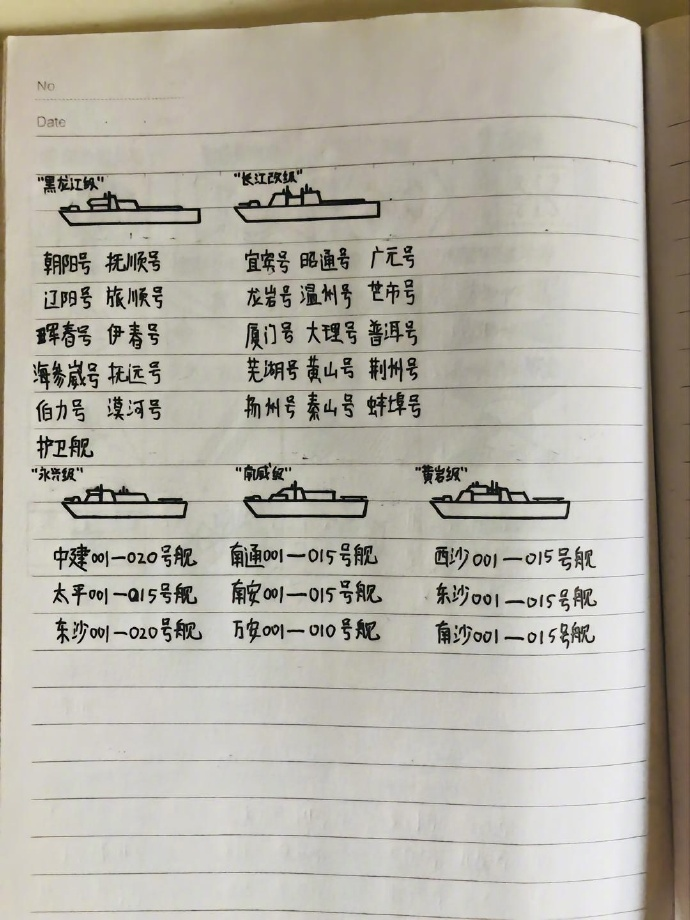 No
Date
"黑龙江级" "长江改级"
朝阳号 抚顺号 宜宾号 昭通号 广元号
辽阳号 旅顺号 龙岩号 温州号 芒市号
珲春号 伊春号 厦门号 大理号 普洱号
海参崴号 抚远号 芜湖号 黄山号 荆州号
伯力号 漠河号 扬州号 泰山号 蚌埠号
护卫舰
"永兴级" "南威级" "黄岩级"
中建001—020号舰 南通001—015号舰 西沙001—015号舰
太平001—015号舰 南安001—015号舰 东沙001—015号舰
东沙001—020号舰 万安001—010号舰 南沙001—015号舰